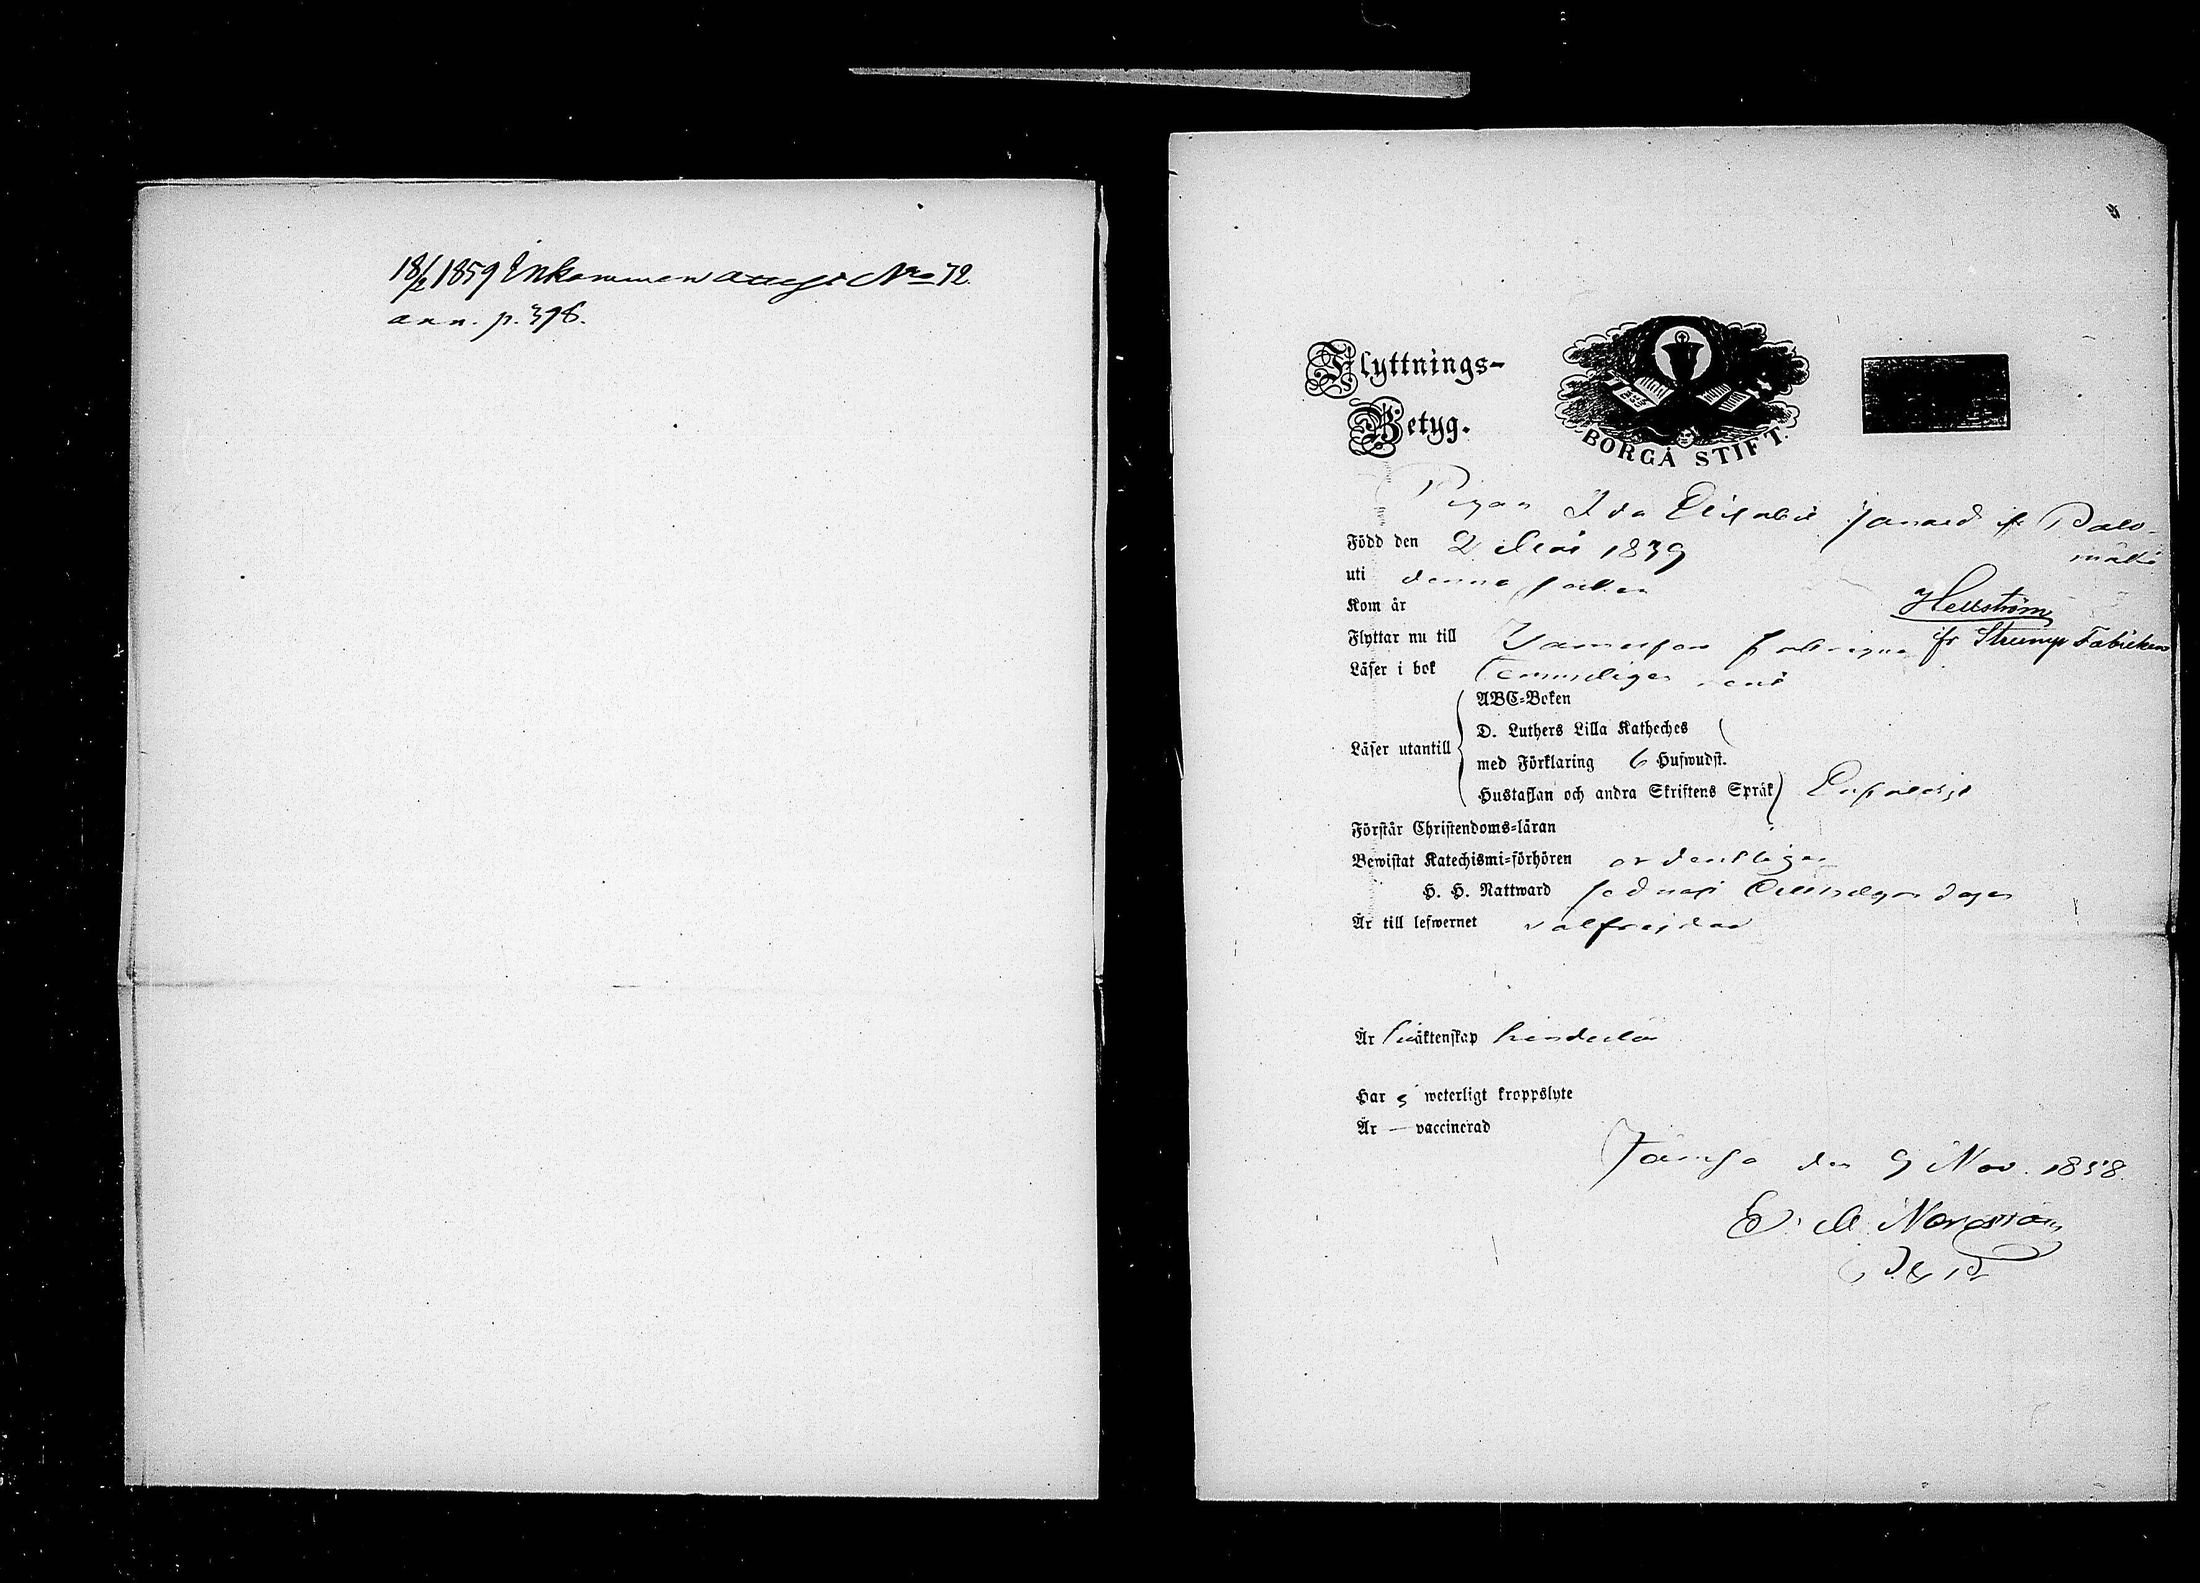 18/2 1859 Inkommen attest No 72.
ann. p. 398.
Flyttnings-
Betyg.
BORGÅ STIFT.
Pigan Ida
Född den 2 Maj 1839
uti denna socken
Kom år
Hellström
Flyttar nu till Tammerfors
fr Strump Fabriken
Läser i bok temmeligen rent
ABC-Boken
D. Luthers Lilla Katheches
Läser utantill
med Förklaring 6 Hufwudst.
Hustaflan och andra Skriftens Språk
Förstår Christendoms-läran
Bewistat Katechismi-förhören ordentligen
H. H. Nattward sednast
Är till lefwernet välfrejdad
Är till äktenskap hinderlös
Har ej weterligt kroppslyte
Är — vaccinerad
Jämsä den 9 Nov. 1858.
Nordström